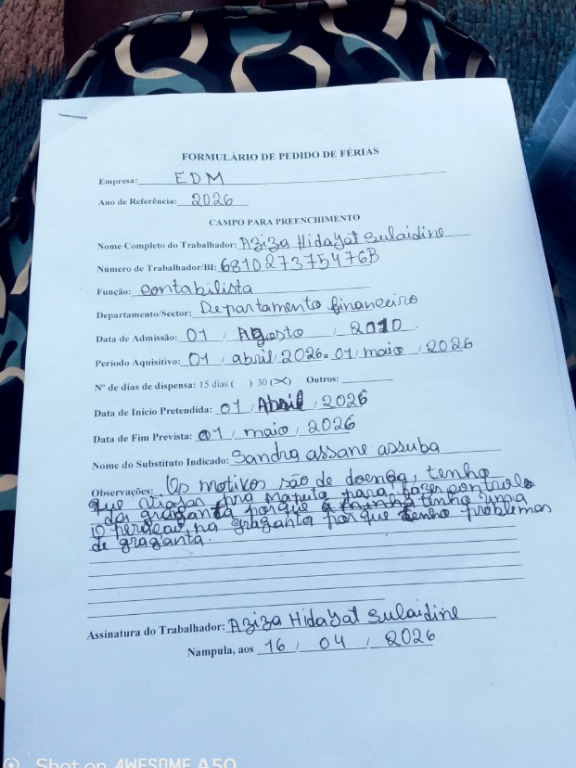 FORMULÁRIO DE PEDIDO DE FÉRIAS
Empresa: EDM
Ano de Referência: 2026
CAMPO PARA PREENCHIMENTO
Nome Completo do Trabalhador: Aziza Hidayat Sulaidine
Número de Trabalhador/BI: 681027375476B
Função: contabilista
Departamento/Sector: Departamento financeiro
Data de Admissão: 01 / Agosto / 2010
Período Aquisitivo: 01 / abril / 2026 a 01 / maio / 2026
Nº de dias de dispensa: 15 dias ( ) 30 (X) Outros:
Data de Início Pretendida: 01 / Abril / 2026
Data de Fim Prevista: 01 / maio / 2026
Nome do Substituto Indicado: Sandra assane assuba
Observações: Os motivos são de doença, tenho
que viajar pra maputo para fazer controlo
das graganta porque a minha tinha uma
operaçao na graganta porque tenho problemas
de graganta.
Assinatura do Trabalhador: Aziza Hidayat Sulaidine
Nampula, aos 16 / 04 / 2026
Shot on AWESOME A50